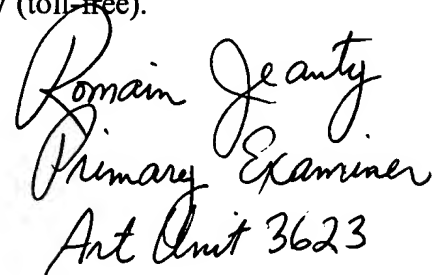 (toll-free).
Romain Jeanty
Primary Examiner
Art Unit 3623